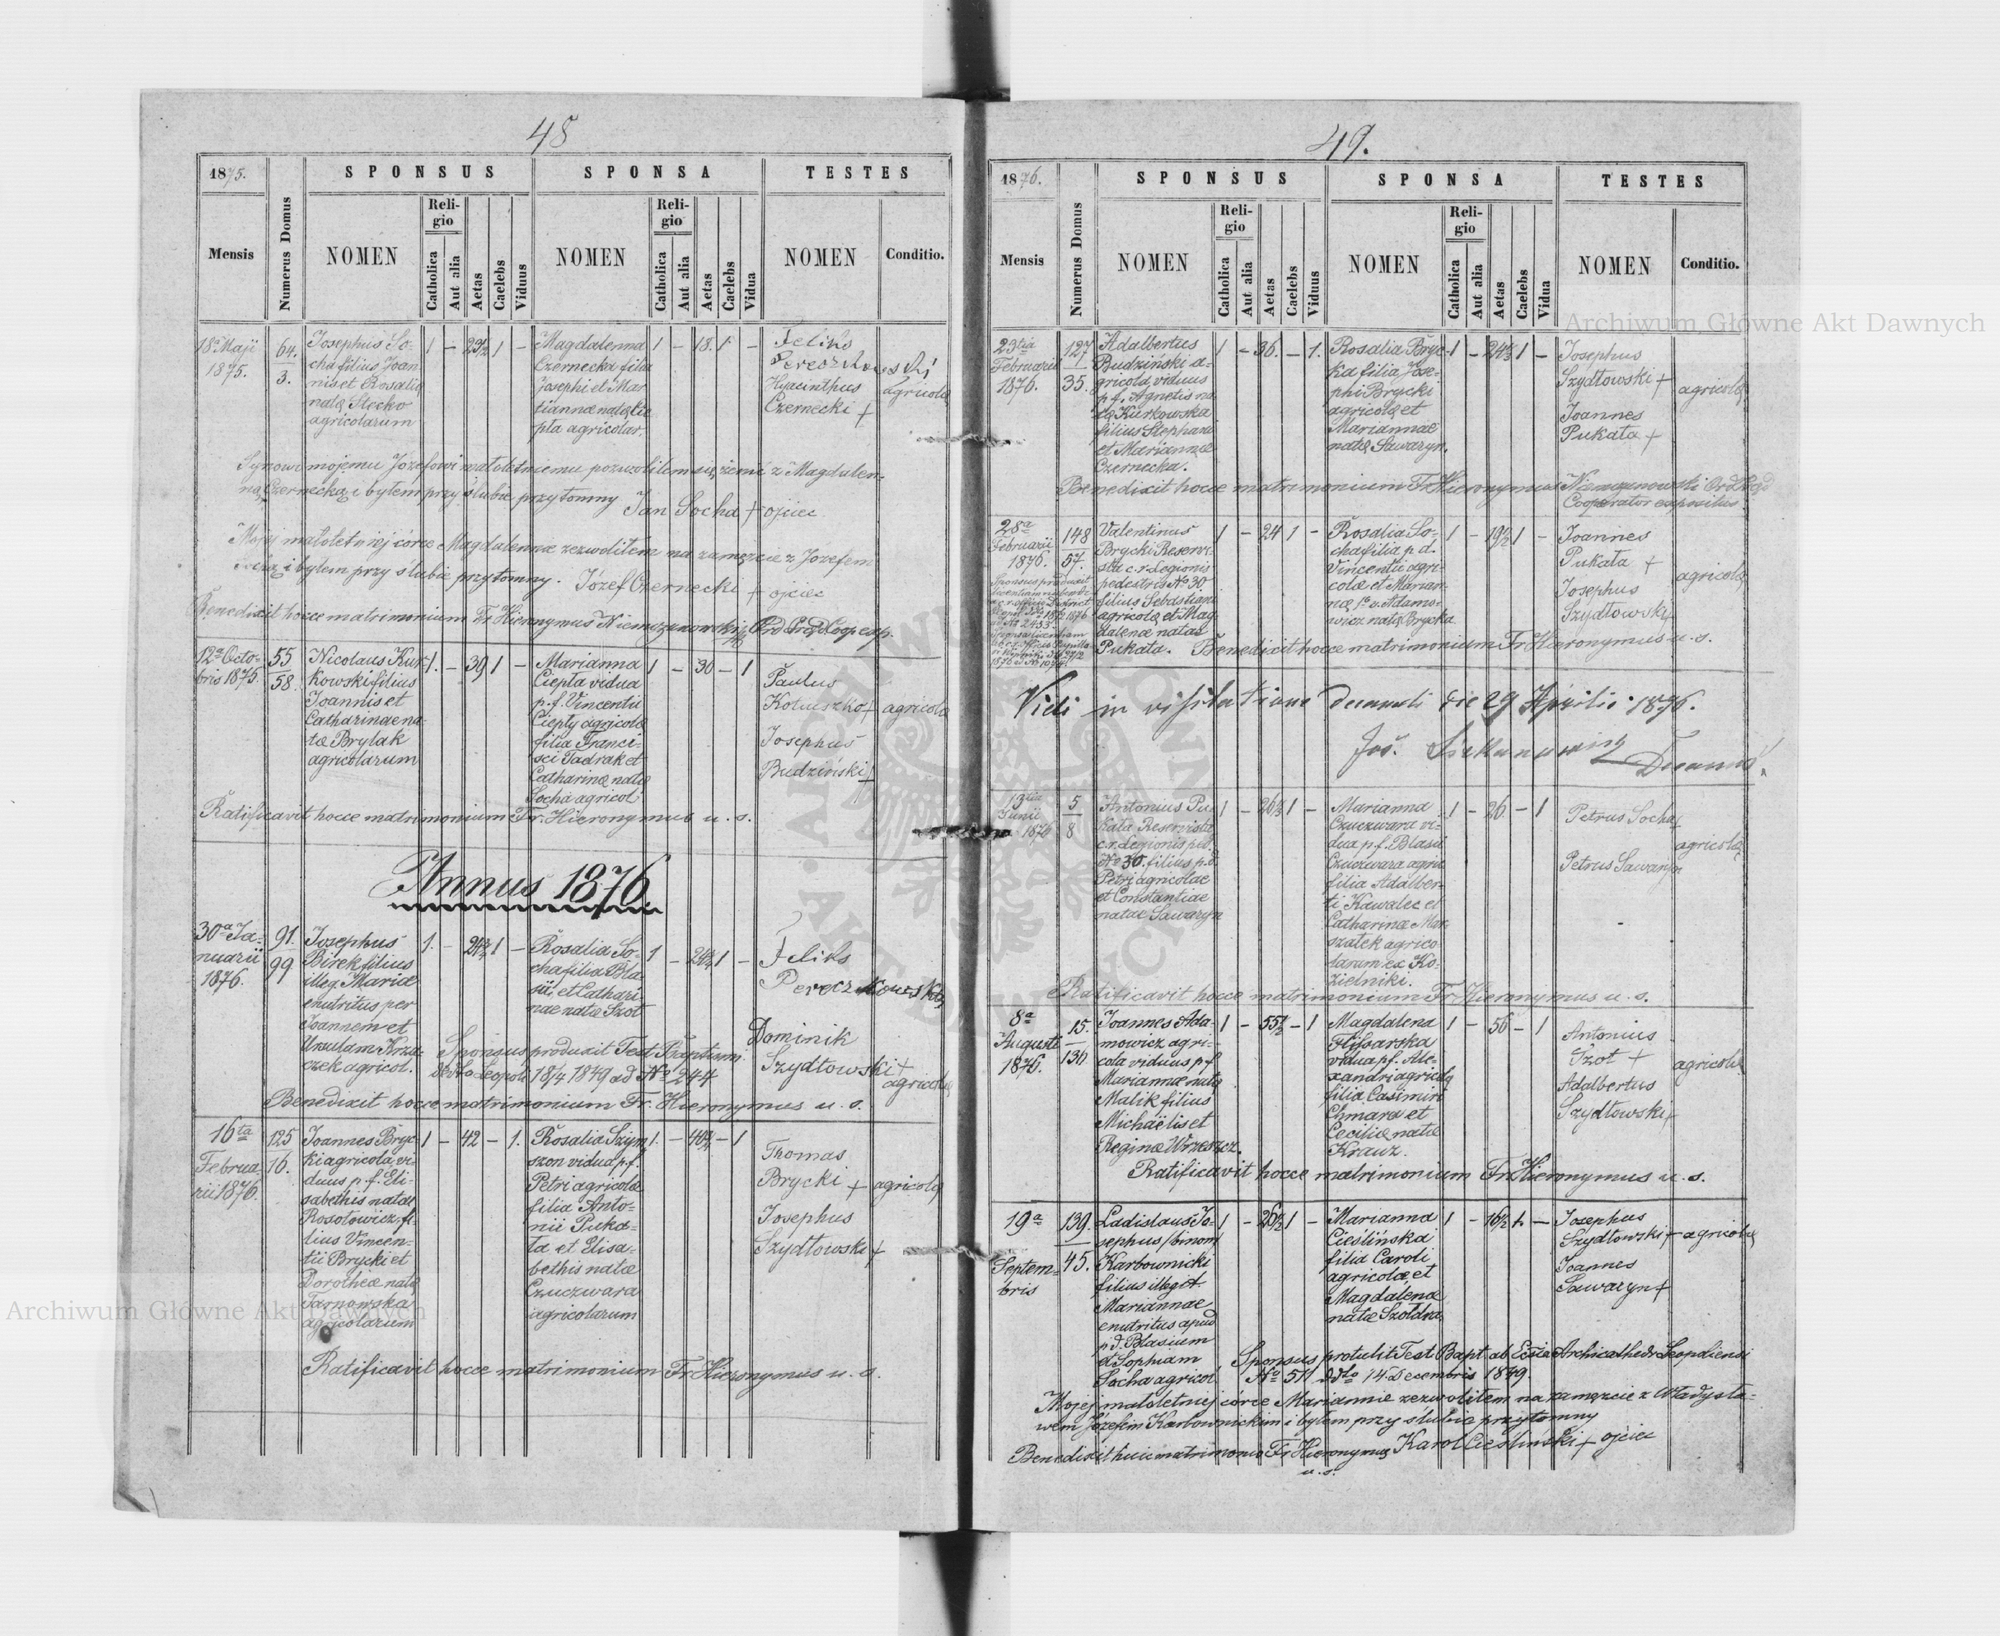 48
1875.
SPONSUS
SPONSA
TESTES
Mensis
Numerus Domus
NOMEN
Religio
Catholica
Aut alia
Aetas
Caelebs
Viduus
NOMEN
Religio
Catholica
Aut alia
Aetas
Caelebs
Vidua
NOMEN
Conditio.
18a Maji
1875.
64.
3.
Josephus So-
cha filius Joan
nis et Rosaliæ
natæ Stecko
agricolarum
1 – 23½ 1 –
Magdalenna
Czernecka filia
Josephi et Mar
iannæ natæ Cie
pła agricolar.
1 – 18. 1 –
Feliks
Hyacinthus
Czernecki +
agricolæ
Synowi mojemu Józefowi małoletniemu pozwoliłem się żenić z Magdalen-
ną Czernecką i byłem przy ślubie przytomny Jan Socha + ojciec
Mojej małoletniej córce Magdalennæ zezwoliłem na zamęzcie z Józefem
Sochą i byłem przy ślubie przytomny. Józef Czernecki + ojciec
Benedixit hocce matrimonium Fr Hieronymus
12a Octo-
bris 1875.
55
58.
Nicolaus Kur-
kowski filius
Joannis et
Catharinæ na-
tæ Brylak
agricolarum
1. – 39 1 –
Marianna
Ciepła vidua
p. f. Vincentii
Ciepły agricolæ
filia Franci-
sci Tadrak et
Catharinæ natæ
Socha agricol
1 – 30 – 1
Paulus
Kotuszko +
Josephus
Budziński +
agricolæ
Ratificavit hocce matrimonium Fr. Hieronymus u. s.
Annus 1876
30a Ja-
nuarii
1876.
91.
99
Josephus
Birek filius
illeg. Mariæ
enutritus per
Joannem et
Ursulam Krza-
czek agricol.
1. – 24¾ 1 –
Rosalia So-
cha filia Bla
sii, et Cathari
næ natæ Szot
1 – 24¾ 1 –
Feliks
Dominik
Szydłowski +
agricolæ
Sponsus produxit Test Baptismi
ddto Leopoli 18/4 1849 ad No 244
Benedixit hocce matrimonium Fr. Hieronymus u. s.
16ta
Februa
rii 1876.
125
16.
Joannes Bryc
ki agricola, vi-
duus p. f. Eli-
sabethis natæ
Rosołowicz, fi-
lius Vincen-
tii Brycki et
Dorotheæ natæ
Tarnowska
agricolarum
1 – 42 – 1.
Rosalia Szym
szon vidua p. f.
Petri agricolæ
filia Anto-
nii Puka-
ła et Elisa-
bethis natæ
Czuczwara
agricolarum
1. – 40¾ – 1
Thomas
Brycki +
Josephus
Szydłowski +
agricolæ
Ratificavit hocce matrimonium Fr Hieronymus u. s.
49.
1876.
SPONSUS
SPONSA
TESTES
Mensis
Numerus Domus
NOMEN
Religio
Catholica
Aut alia
Aetas
Caelebs
Viduus
NOMEN
Religio
Catholica
Aut alia
Aetas
Caelebs
Vidua
NOMEN
Conditio.
23tia
Februarii
1876.
127
35.
Adalbertus
Budziński a-
gricola, viduus
p. f. Agnetis na
tæ Kurkowska
filius Stephani
et Mariannæ
Czernecka.
1 – 36. – 1.
Rosalia Bryc-
ka filia Jose-
phi Brycki
agricolæ et
Mariannæ
natæ Sawaryn.
1 – 24¾ 1 –
Josephus
Szydłowski +
Joannes
Pukała +
agricolæ
Benedixit hocce matrimonium Fr Hieronymus
Cooperator expositus
28a
Februarii
1876.
148
57.
Valentinus
Brycki Reservi-
sta c. r. Legionis
pedestris No 30
filius Sebastiani
agricolæ et Mag
dalenæ natæ
Pukała.
1 – 24 1 –
Rosalia So-
cha filia p. d.
Vincentii agri-
colæ et Marian-
næ 1o v. Adamo-
wicz natæ Brycka
1 – 19½ 1 –
Joannes
Pukała +
Josephus
Szydłowski +
agricolæ
Benedixit hocce matrimonium Fr Hieronymus u. s.
Vidi in visitatione decanali die 29 Aprilis 1876.
Jos.
Decanus
13tia
Junii
1876
5
8
Antonius Pu
kała Reservista
c. r. Legionis ped.
No 30. filius p. d.
Petri agricolae
et Constantiae
natae Sawaryn
1 – 26¾ 1 –
Marianna
Czuczwara vi-
dua p. f. Blasii
Czuczwara agric
filia Adalber-
ti Kawalec et
Catharinæ Mar
szałek agrico
larum ex Ko-
zielniki.
1 – 26. – 1
Petrus Socha +
Petrus Sawaryn
agricolæ
Ratificavit hocce matrimonium Fr Hieronymus u. s.
8a
Augusti
1876.
15.
136
Joannes Ada-
mowicz agri-
cola viduus p. f.
Mariannæ natæ
Malik filius
Michaëlis et
Reginæ Wrzeszcz.
1 – 55½ – 1
Magdalena
Flisarska
vidua p. f. Ale-
xandri agricolæ
filia Casimiri
Chmara et
Ceciliæ natæ
Krauz.
1 – 56 – 1
Antonius
Szot +
Adalbertus
Szydłowski +
agricolæ
Ratificavit hocce matrimonium Fr Hieronymus u. s.
19a
Septem-
bris
139.
45.
Ladislaus Jo-
sephus /binom/
Karbownicki
filius illegit.
Mariannae
enutritus apud
p. d. Blasium
et Sophiam
Socha agricol.
1 – 26½ 1 –
Marianna
Cieślińska
filia Caroli
agricolæ, et
Magdalenæ
natæ Szołdra
1 – 16½ 1. –
Josephus
Szydłowski +
Joannes
Sawaryn +
agricolæ
Sponsus protulit Test Bapt ab Ecsia Archicathedr Leopoliensi
No 511 ddto 14 Decembris 1849.
Mojej małoletniej córce Mariannie zezwoliłem na zamęzcie z Władysła-
wem Józefem Karbownickim i byłem przy ślubie przytomny
Karol Cieśliński + ojciec
Benedixit huic matrimonio Fr Hieronymus
u. s.
Archiwum Główne Akt Dawnych
Archiwum Główne Akt Dawnych